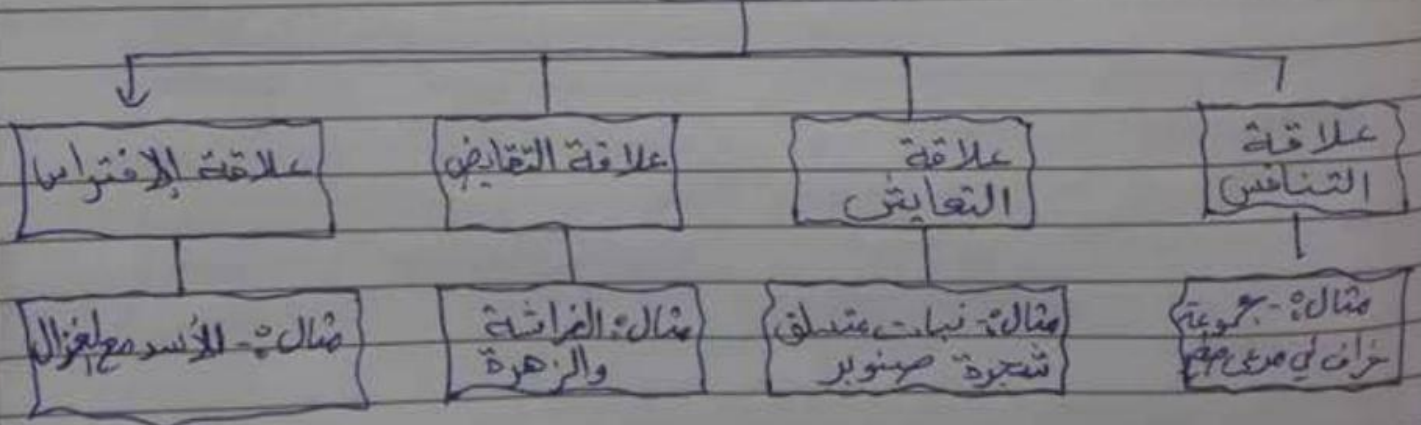 علاقة
التنافس
علاقة
التعايش
علاقة التقايض
علاقة الإفتراس
مثال:- مجموعة
خراف في مرعى
مثال:- نبات متسلق
شجرة صنوبر
مثال: الفراشة
والزهرة
مثال:- الأسد مع الغزال